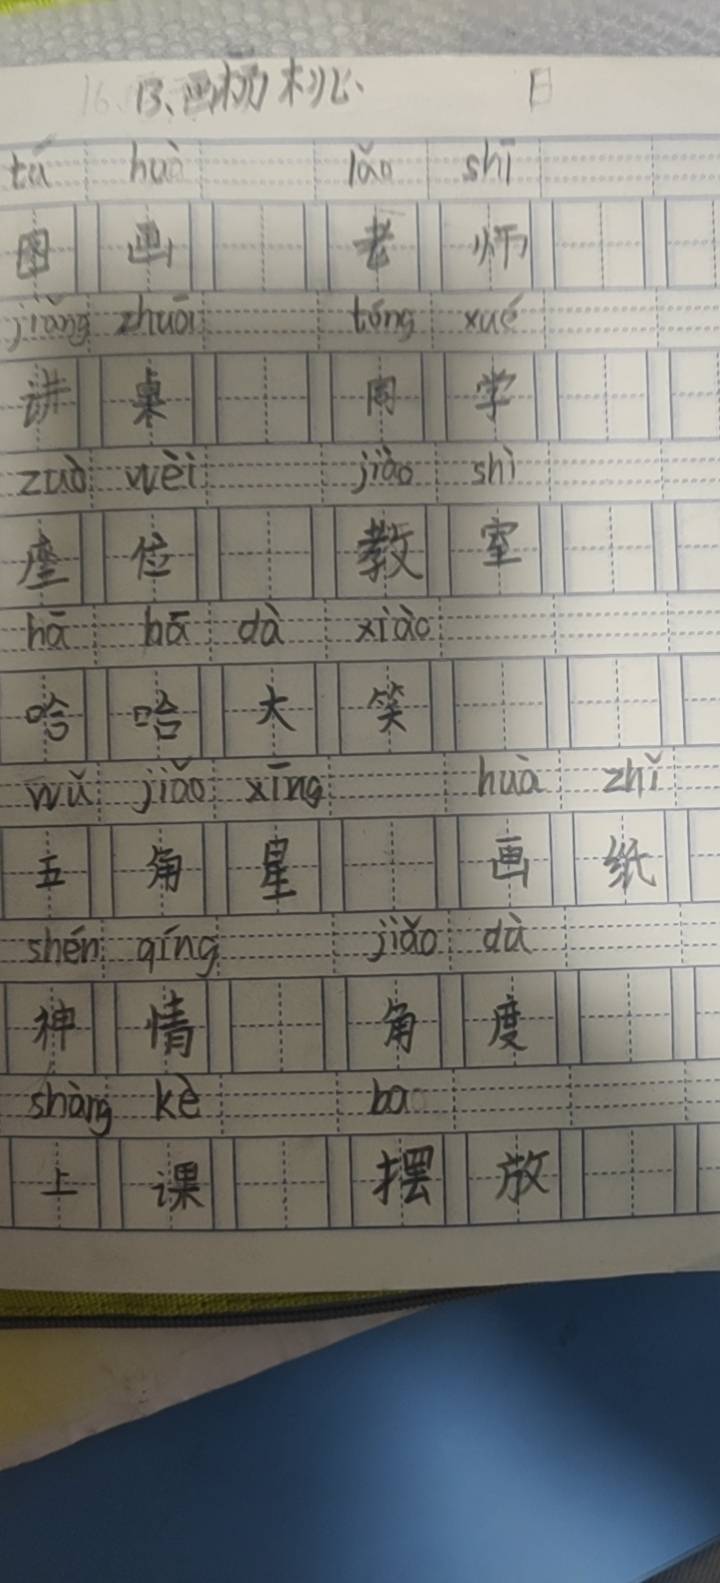 13、画杨桃 日
tú huà lǎo shī
图 画 老 师
jiǎng zhuō tóng xué
讲 桌 同 学
zuò wèi jiào shì
座 位 教 室
hā hā dà xiào
哈 哈 大 笑
wǔ jiǎo xīng huà zhǐ
五 角 星 画 纸
shén qíng jiǎo dù
神 情 角 度
shàng kè ba
上 课 摆 放